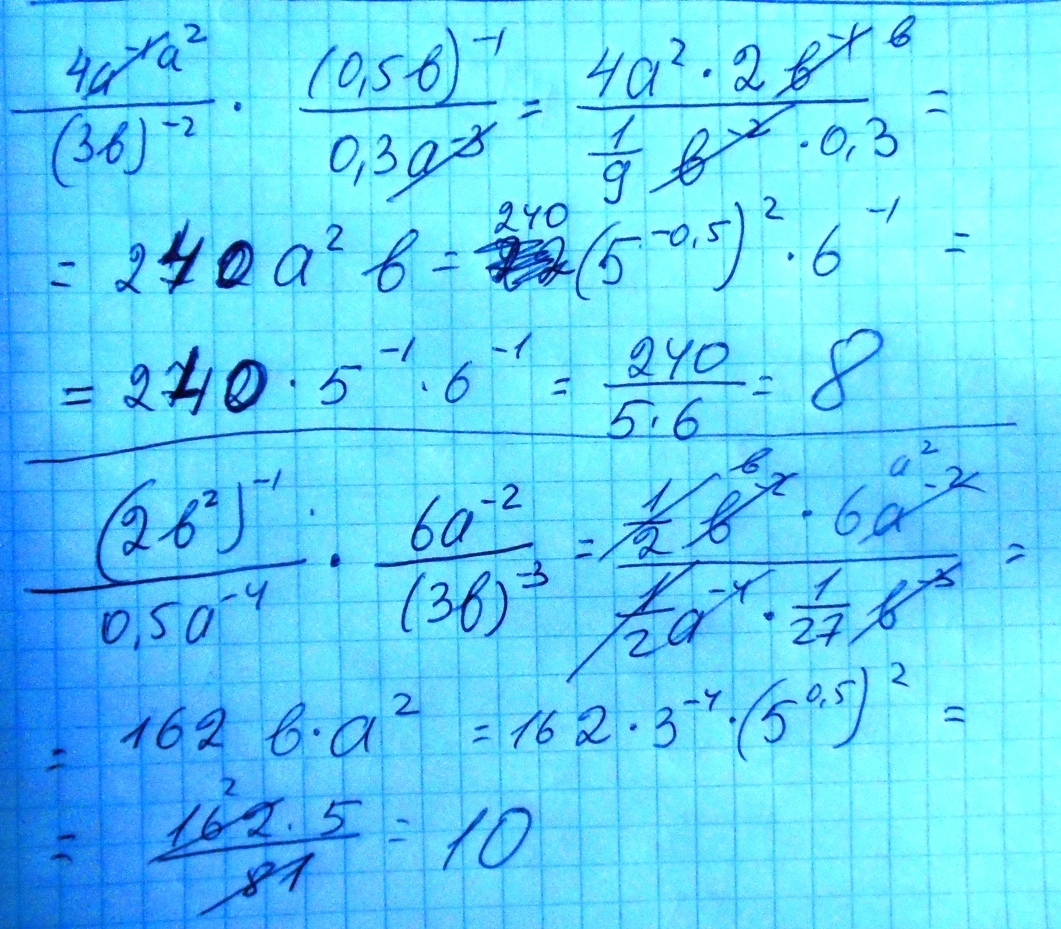 4a⁻¹ a² / (3в)⁻² · (0,5в)⁻¹ / 0,3a⁻³ = 4a² · 2в⁻¹ в / 1/9 в⁻² · 0,3 =
= 240 a² в = 240 (5⁻⁰,⁵)² · 6⁻¹ =
= 240 · 5⁻¹ · 6⁻¹ = 240 / 5·6 = 8
(2в²)⁻¹ / 0,5a⁻⁴ · 6a⁻² / (3в)⁻³ = 1/2 в⁻² в · 6a⁻² a² / 1/2 a⁻⁴ · 1/27 в⁻³ =
= 162 в·a² = 162 · 3⁻⁴ · (5⁰,⁵)² =
= 162 2 · 5 / 81 = 10